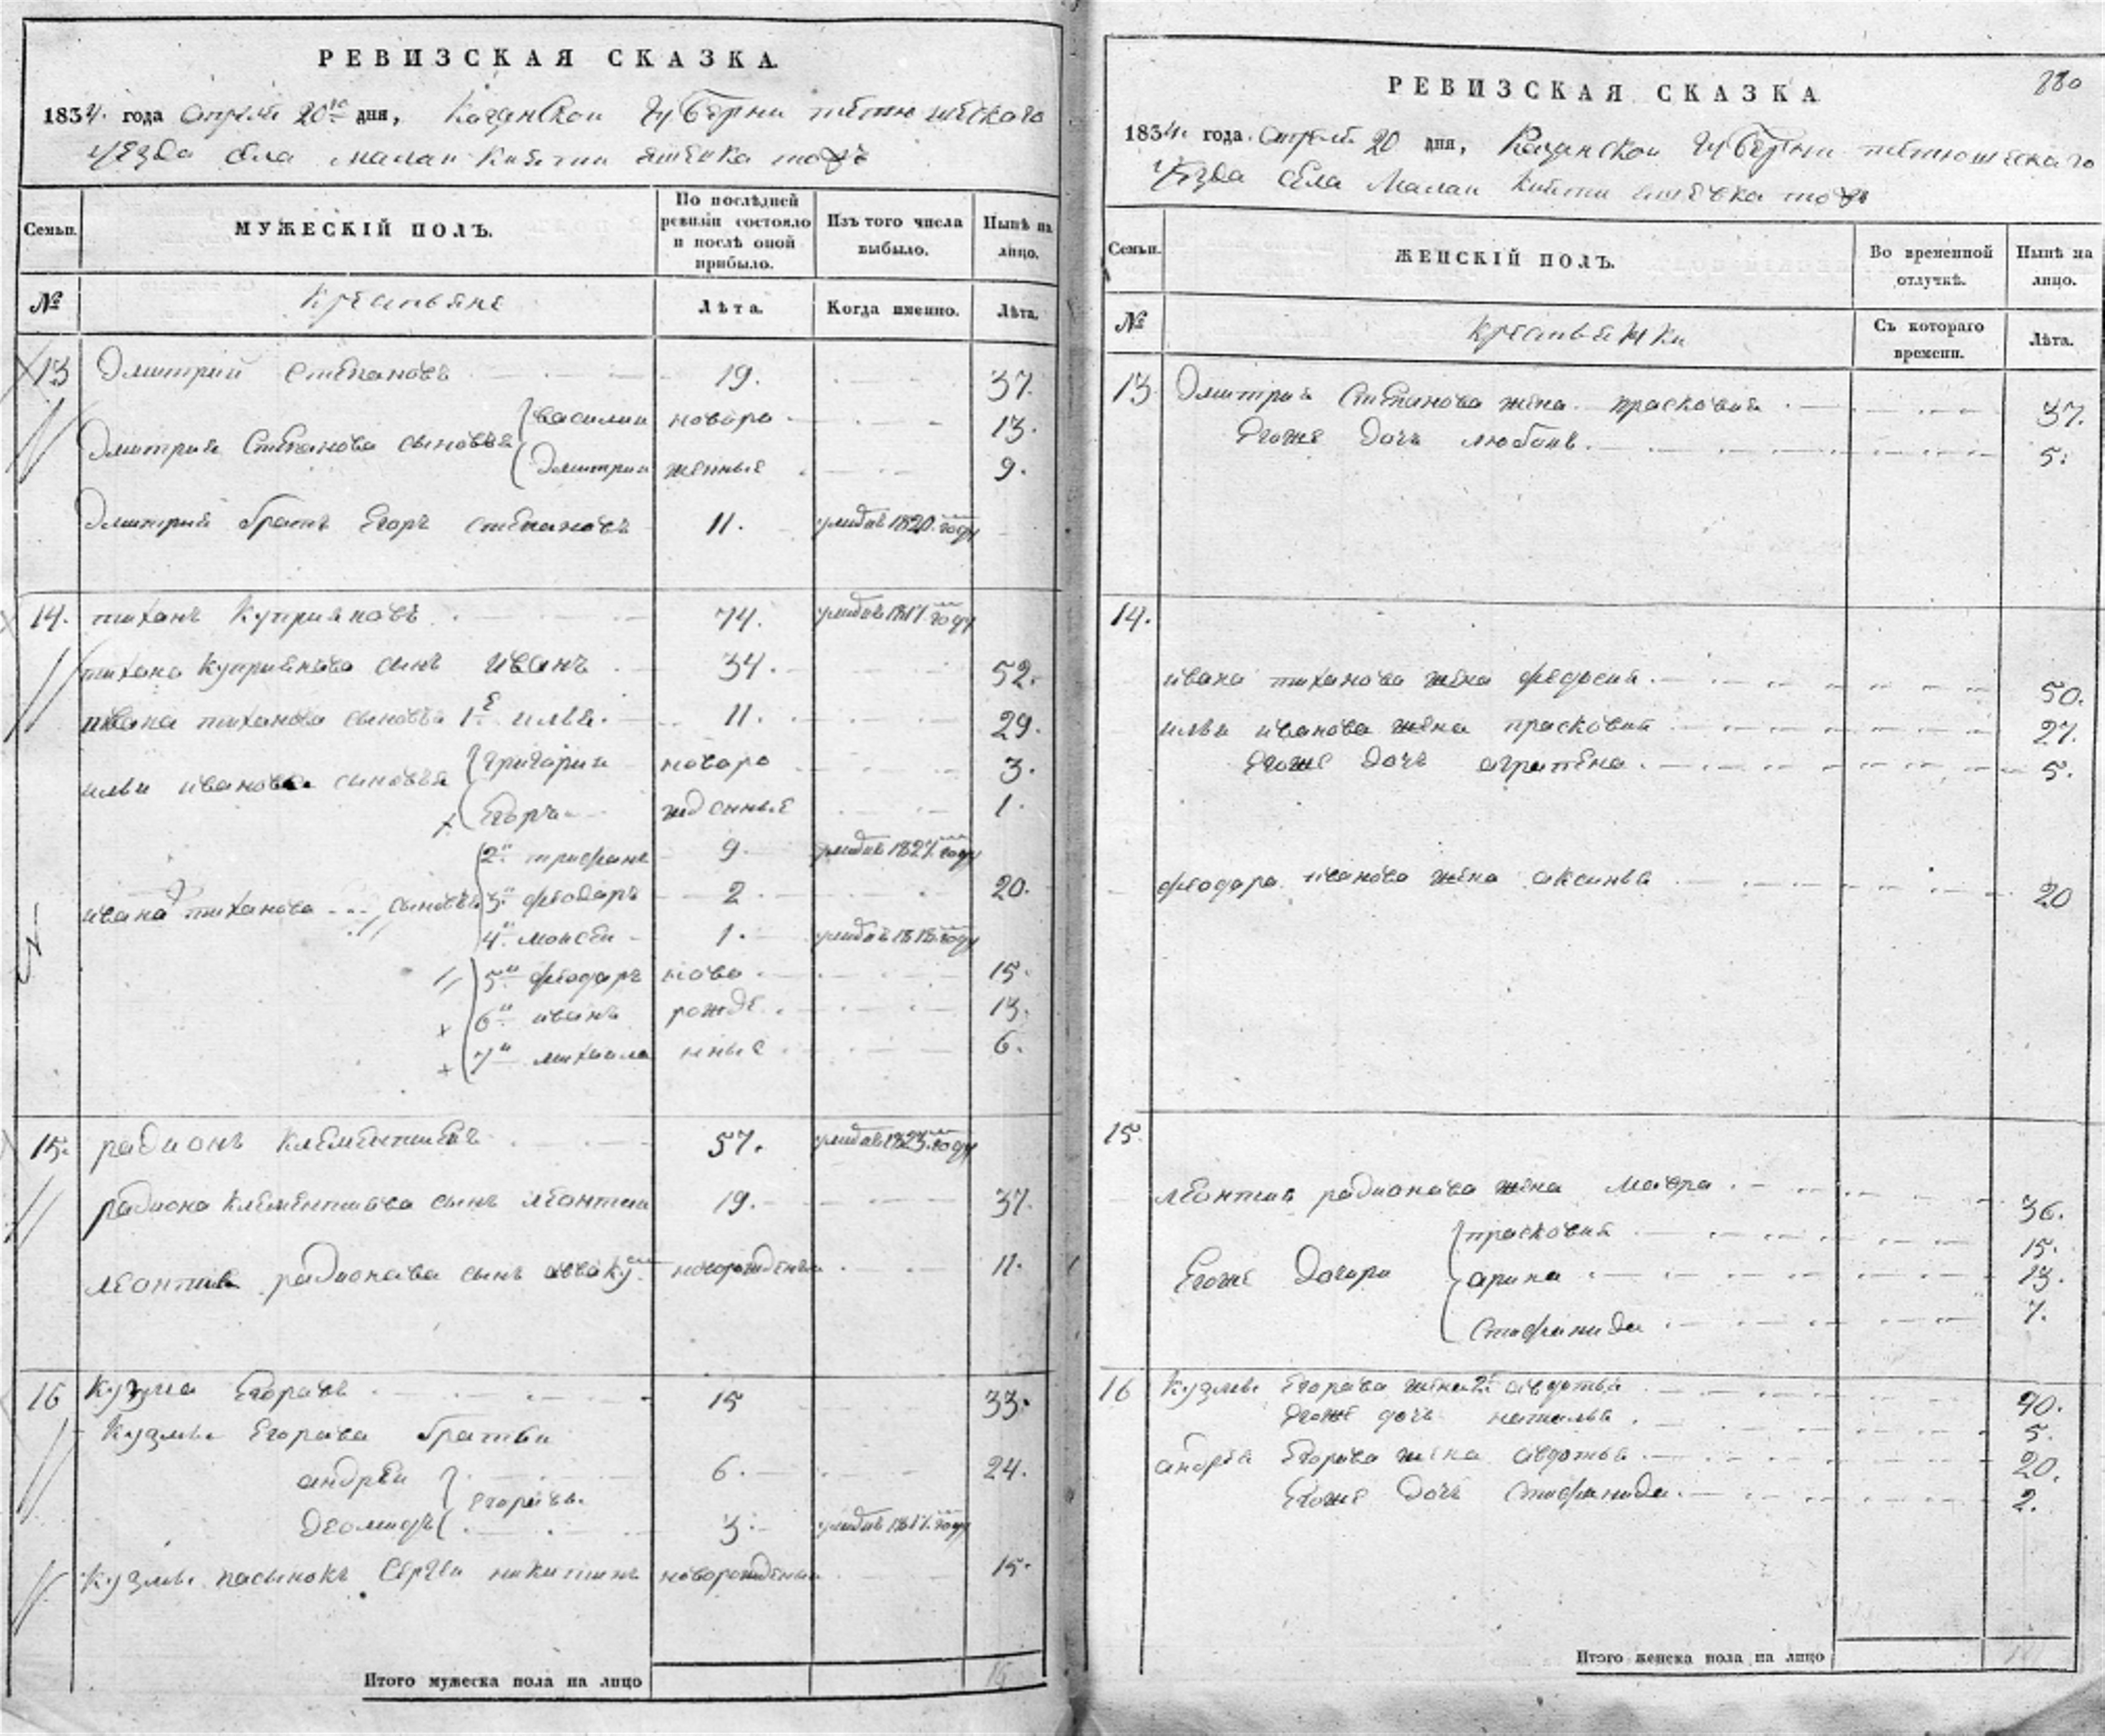 РЕВИЗСКАЯ СКАЗКА.
1834. года апреля 20го дня, Казанской Губернии тетюшескаго
уезда села Малаи
Семьи.
МУЖЕСКІЙ ПОЛЪ.
По послѣдней ревизіи состояло и послѣ оной прибыло.
Изъ того числа выбыло.
Нынѣ на лицо.
№
Крестьяне
Лѣта.
Когда именно.
Лѣта.
13 Дмитрий Степановъ 19. 37.
Дмитрия Степанова сыновья василии новоро 13.
Дмитрии женные 9.
Дмитрия братъ Егоръ степановъ 11. умре въ 1820. году
14. тиханъ Куприяновъ 74. умре въ 1817. году
тихана Куприянова сынъ иванъ 34. 52.
ивана тиханова сыновья 1й илья. 11. 29.
ильи иванова сыновья григории новоро 3.
Егоръ жденные 1.
2й трифанъ 9. умре въ 1827. году
ивана тиханова сыновья 3й феодаръ 2 20.
4й моисеи 1. умре въ 1818. году
5й феодаръ ново 15.
6й иванъ рожде 13.
7й михаила нные 6.
15. радионъ Клементиевъ 57. умре въ 1823. году
радиона Клементиева сынъ леонтии 19. 37.
леонтия радионава сынъ аввакум новорожденныи 11.
16 Кузма Егоравъ 15 33.
Кузмы Егорава братьи
андреи Егоравы. 6. 24.
Деомидъ 3. умре въ 1817. году
Кузмы пасынокъ Сергеи никитинъ новорожденыи 15.
Итого мужеска пола на лицо
РЕВИЗСКАЯ СКАЗКА
880
1834. года. апреля 20 дня, Казанскои Губернии тетюшескаго
уезда села Малаи
Семьи.
ЖЕНСКІЙ ПОЛЪ.
Во временной отлучкѣ.
Нынѣ на лицо.
№
крестьянки
Съ котораго времени.
Лѣта.
13 Дмитрия Степанова жена прасковия 37.
Егоже дочь любовь. 5.
14.
ивана тиханова жена федосия. 50.
ильи иванова жена прасковия 27.
Егоже дочь агрипена. 5.
феодара иванова жена аксинья 20
15.
леонтия радионава жена Мавра. 36.
Егоже дочери прасковия 15.
арина 13.
Стефанида 7.
16 Кузмы Егорава жена 2я авдотья 40.
Егоже дочь наталья. 5.
андрея Егорава жена авдотья 20.
Егоже дочь Стефанида. 2.
Итого женска пола на лицо